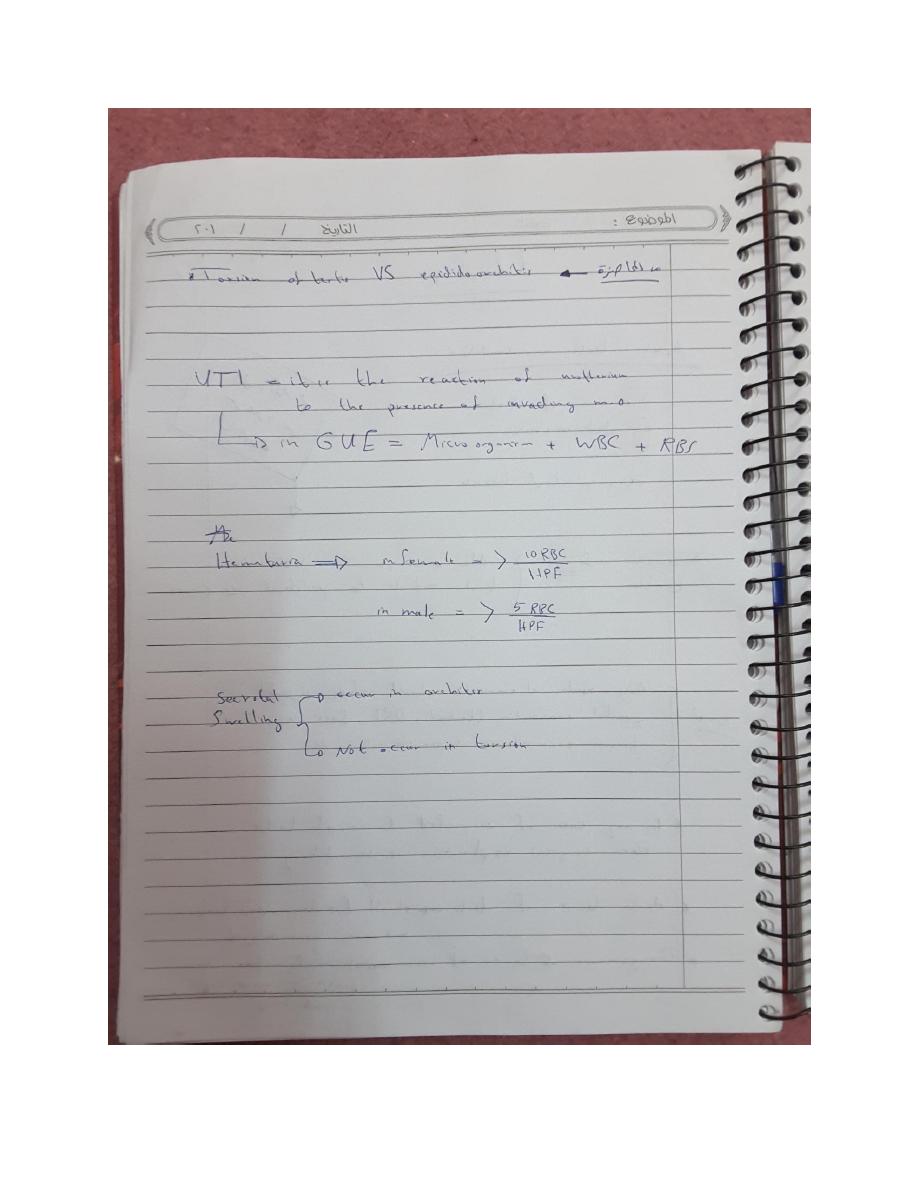 الموضوع :
التاريخ / / ٢٠١
* Torsion of testis VS epididoorchitis ← من المحاضرة
UTI = it is the reaction of urothenium
to the presence of invading m.o.
in GUE = Microorganism + WBC + RBS
Hematuria ⇒ in female = > 10 RBC / HPF
in male = > 5 RBC / HPF
Secrotal Swelling
occur in orchites
Not occur in torsion